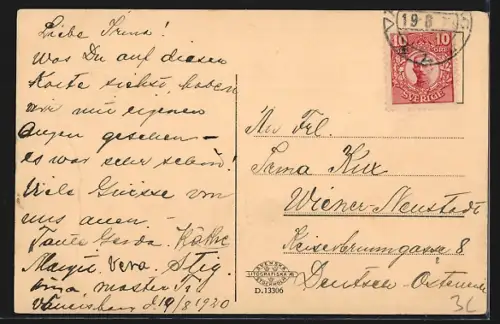 Liebe Irma!
Was Du auf dieser
Karte siehst, haben
wir mit eigenen
Augen gesehen –
es war sehr schön!
Viele Grüsse von
uns allen –
Tante Gerda. Käthe
Margit. Vera. Stig
d. 19/8 1920
19 8
10 10
SVERIGE
An Frl.
Irma Kux
Wiener-Neustadt
Kaiserbrunngasse 8
Deutsch-Österreich
SVENSKA
LITOGRAFISKA
D. 13306
3L